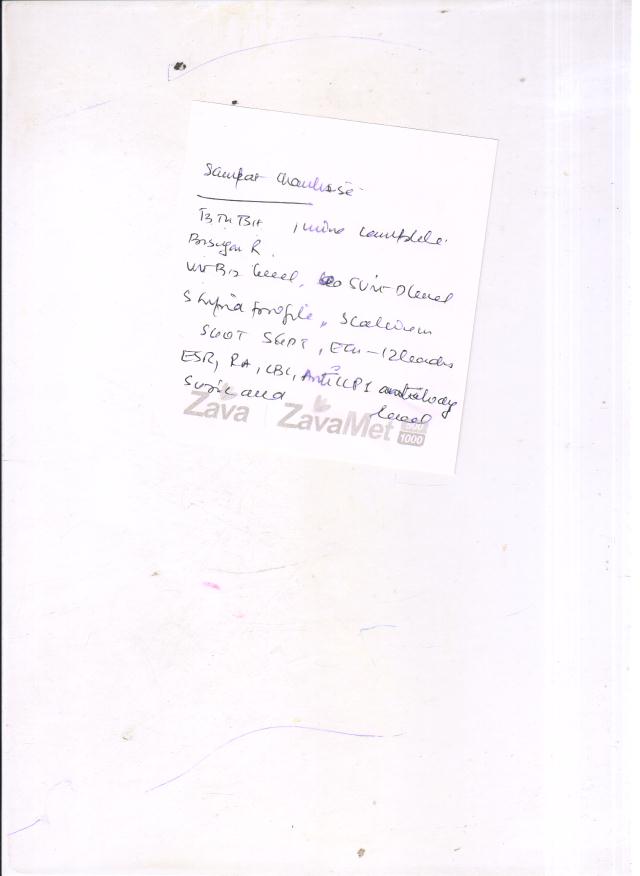 Sampat
T3 T4 TSH , urine complete.
B. Sugar R.
Vit B12 level, S Vit D level
S lipid profile, S calcium
SGOT SGPT, ECG - 12 leads
ESR, RA, CBC, Anti CCP antibody
S uric acid level
Zava ZavaMet
1000